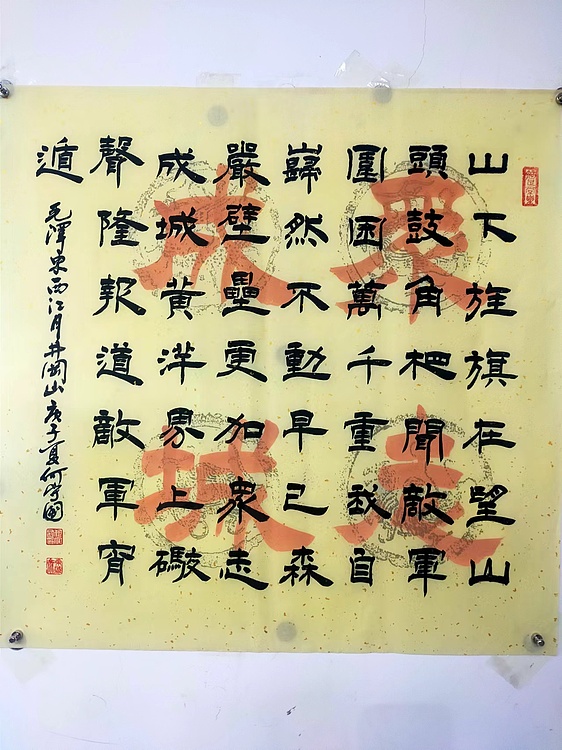 山下旌旗在望山
頭鼓角相聞敵軍
圍困萬千重我自
巋然不動早已森
嚴壁壘更加眾志
成城黃洋界上礮
聲隆報道敵軍宵
遁
毛澤東西江月井岡山庚子夏何學國
眾志
成城